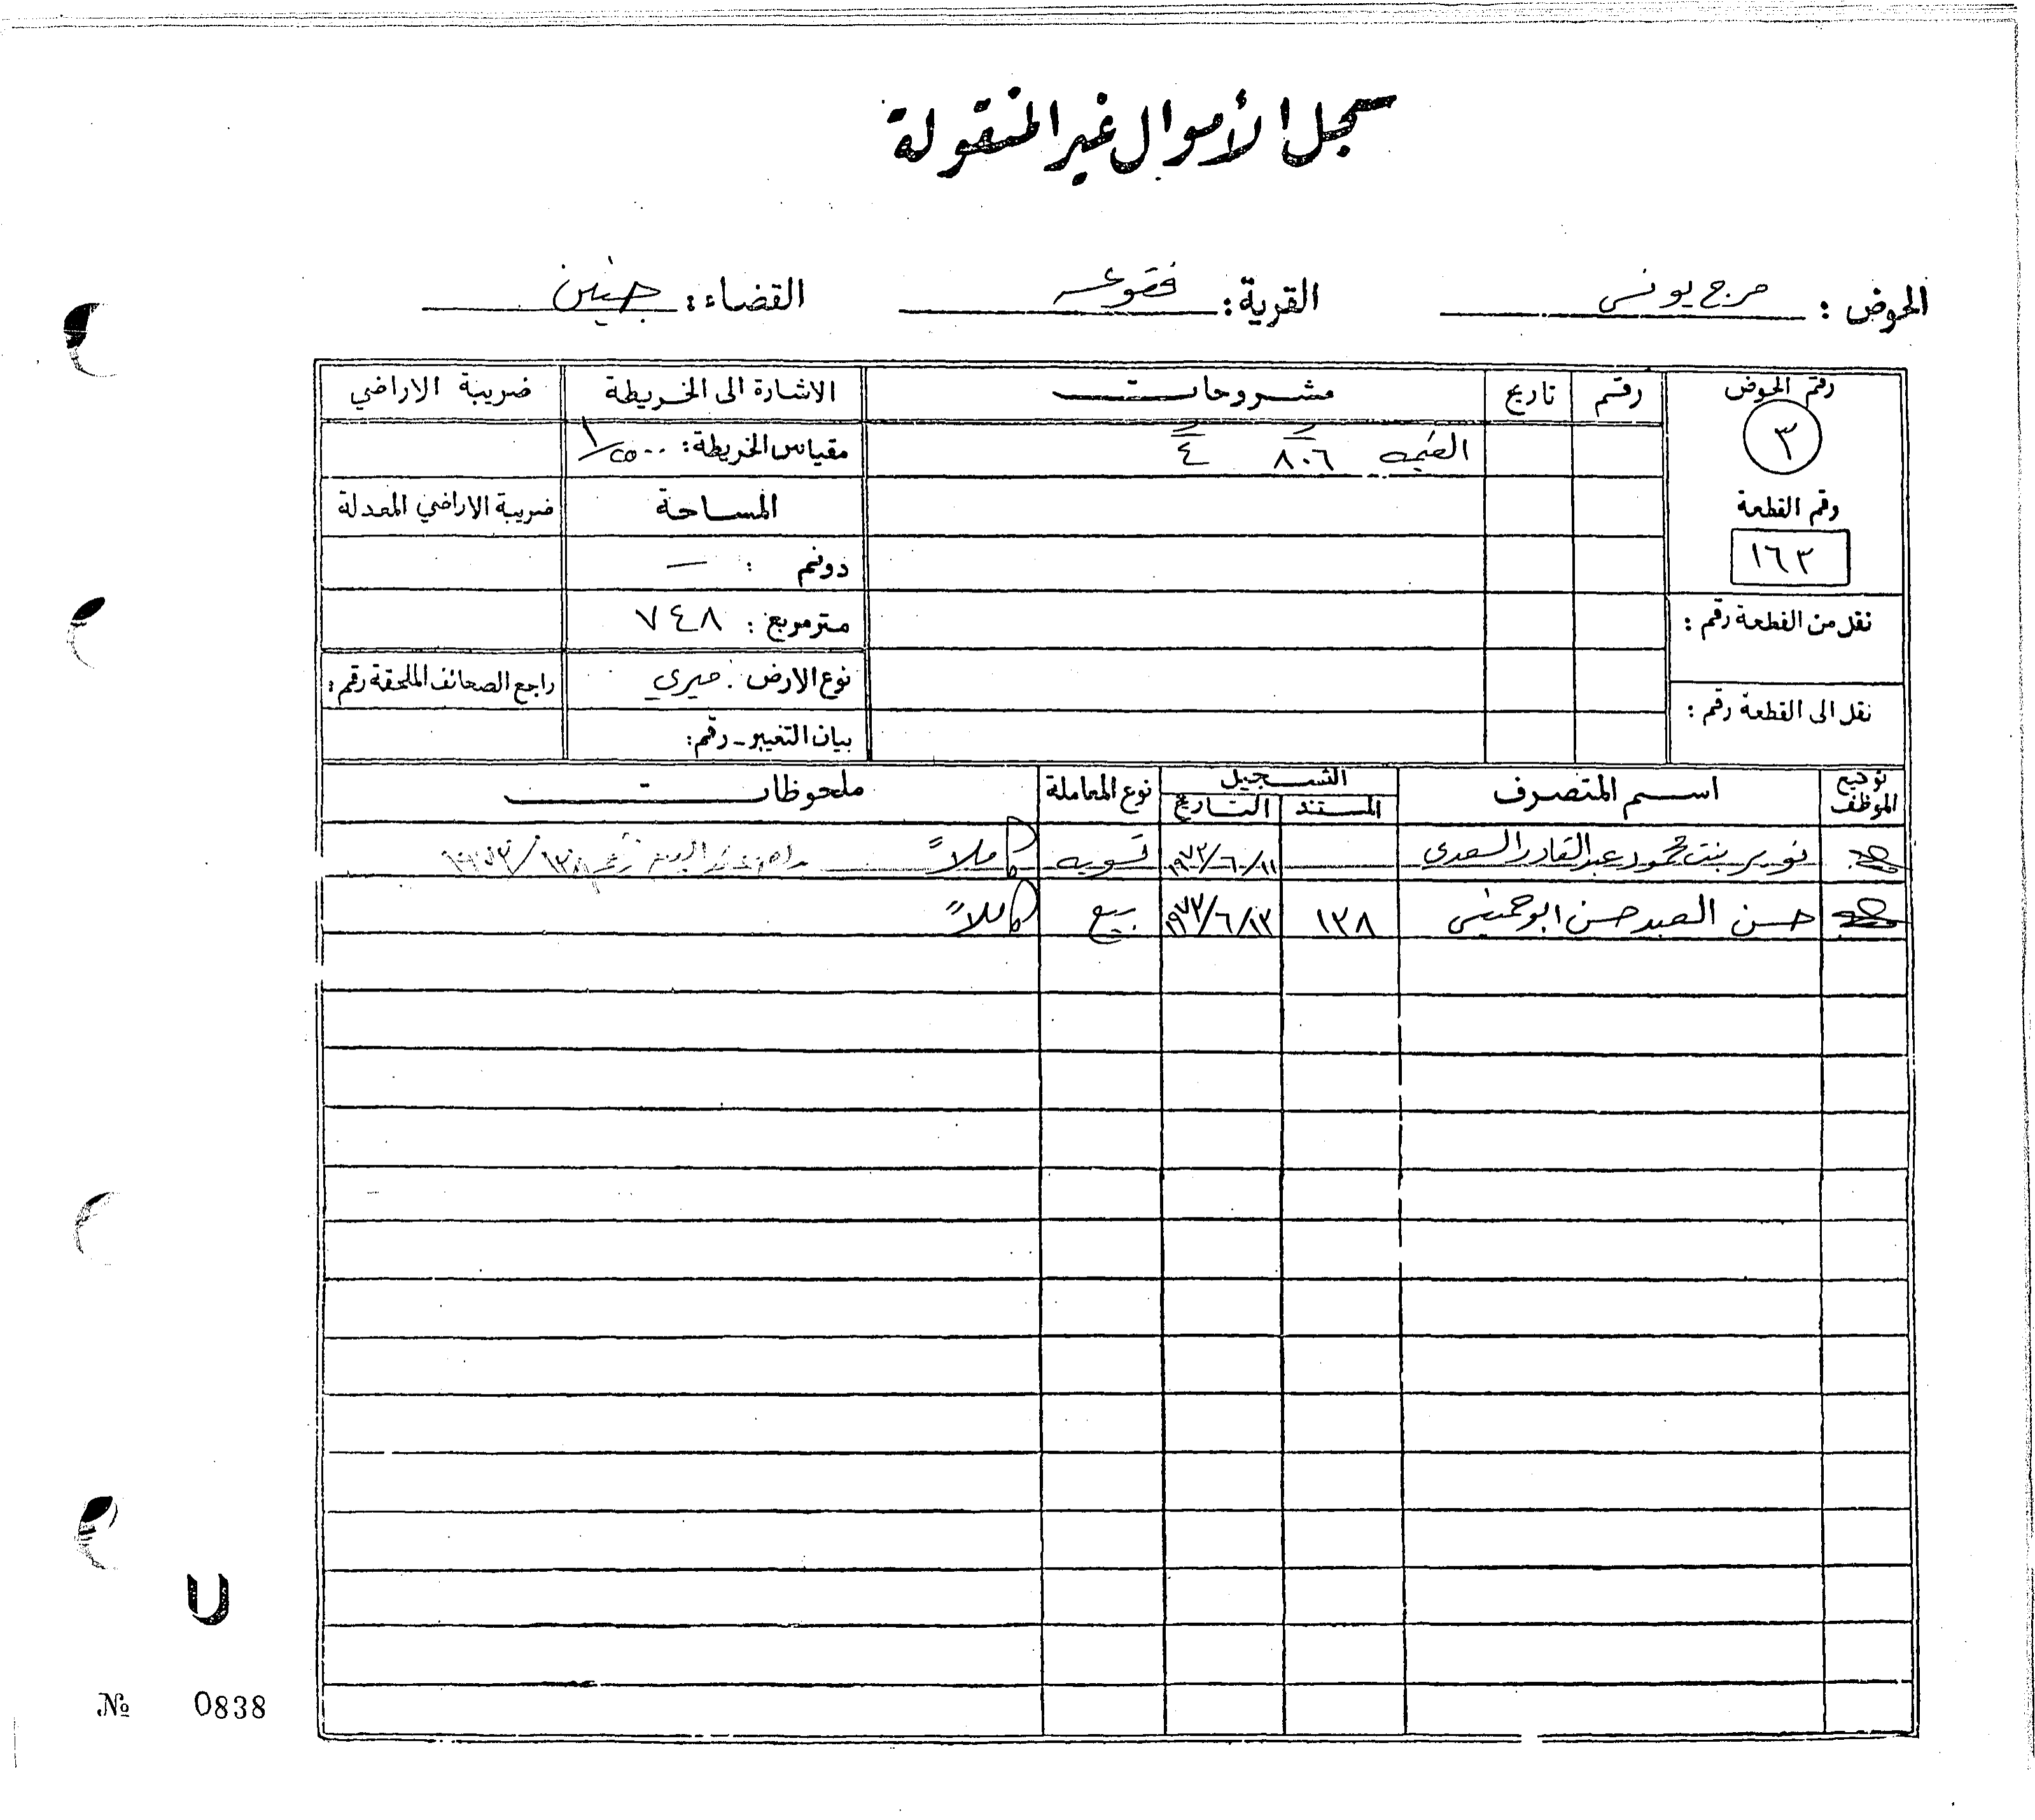 سجل الأموال غير المنقولة
الحوض : مرج يونس القرية : فقوعه القضاء : جنين
رقم الحوض رقم تاريخ مشروحات الاشارة الى الخريطة ضريبة الاراضي
٣ القيمه ٨٠٦ ٤ مقياس الخريطة : ١/٢٥٠٠
رقم القطعة المساحة ضريبة الاراضي المعدلة
١٦٣ دونم : —
نقل من القطعة رقم : متر مربع : ٧٤٨
نوع الارض : ميري راجع الصحائف الملحقة رقم :
نقل الى القطعة رقم :
بيان التغيير - رقم :
توقيع الموظف اسم المتصرف التسجيل نوع المعاملة ملحوظات
المستند التاريخ
بنت محمود عبد القادر السعدي ١١/٦/١٩٧٣ تسويه كاملاً
حسن العبد حسن ابو خميس ١٣٨ ١٣/٦/١٩٧٣ بيع كاملاً
U
№ 0838